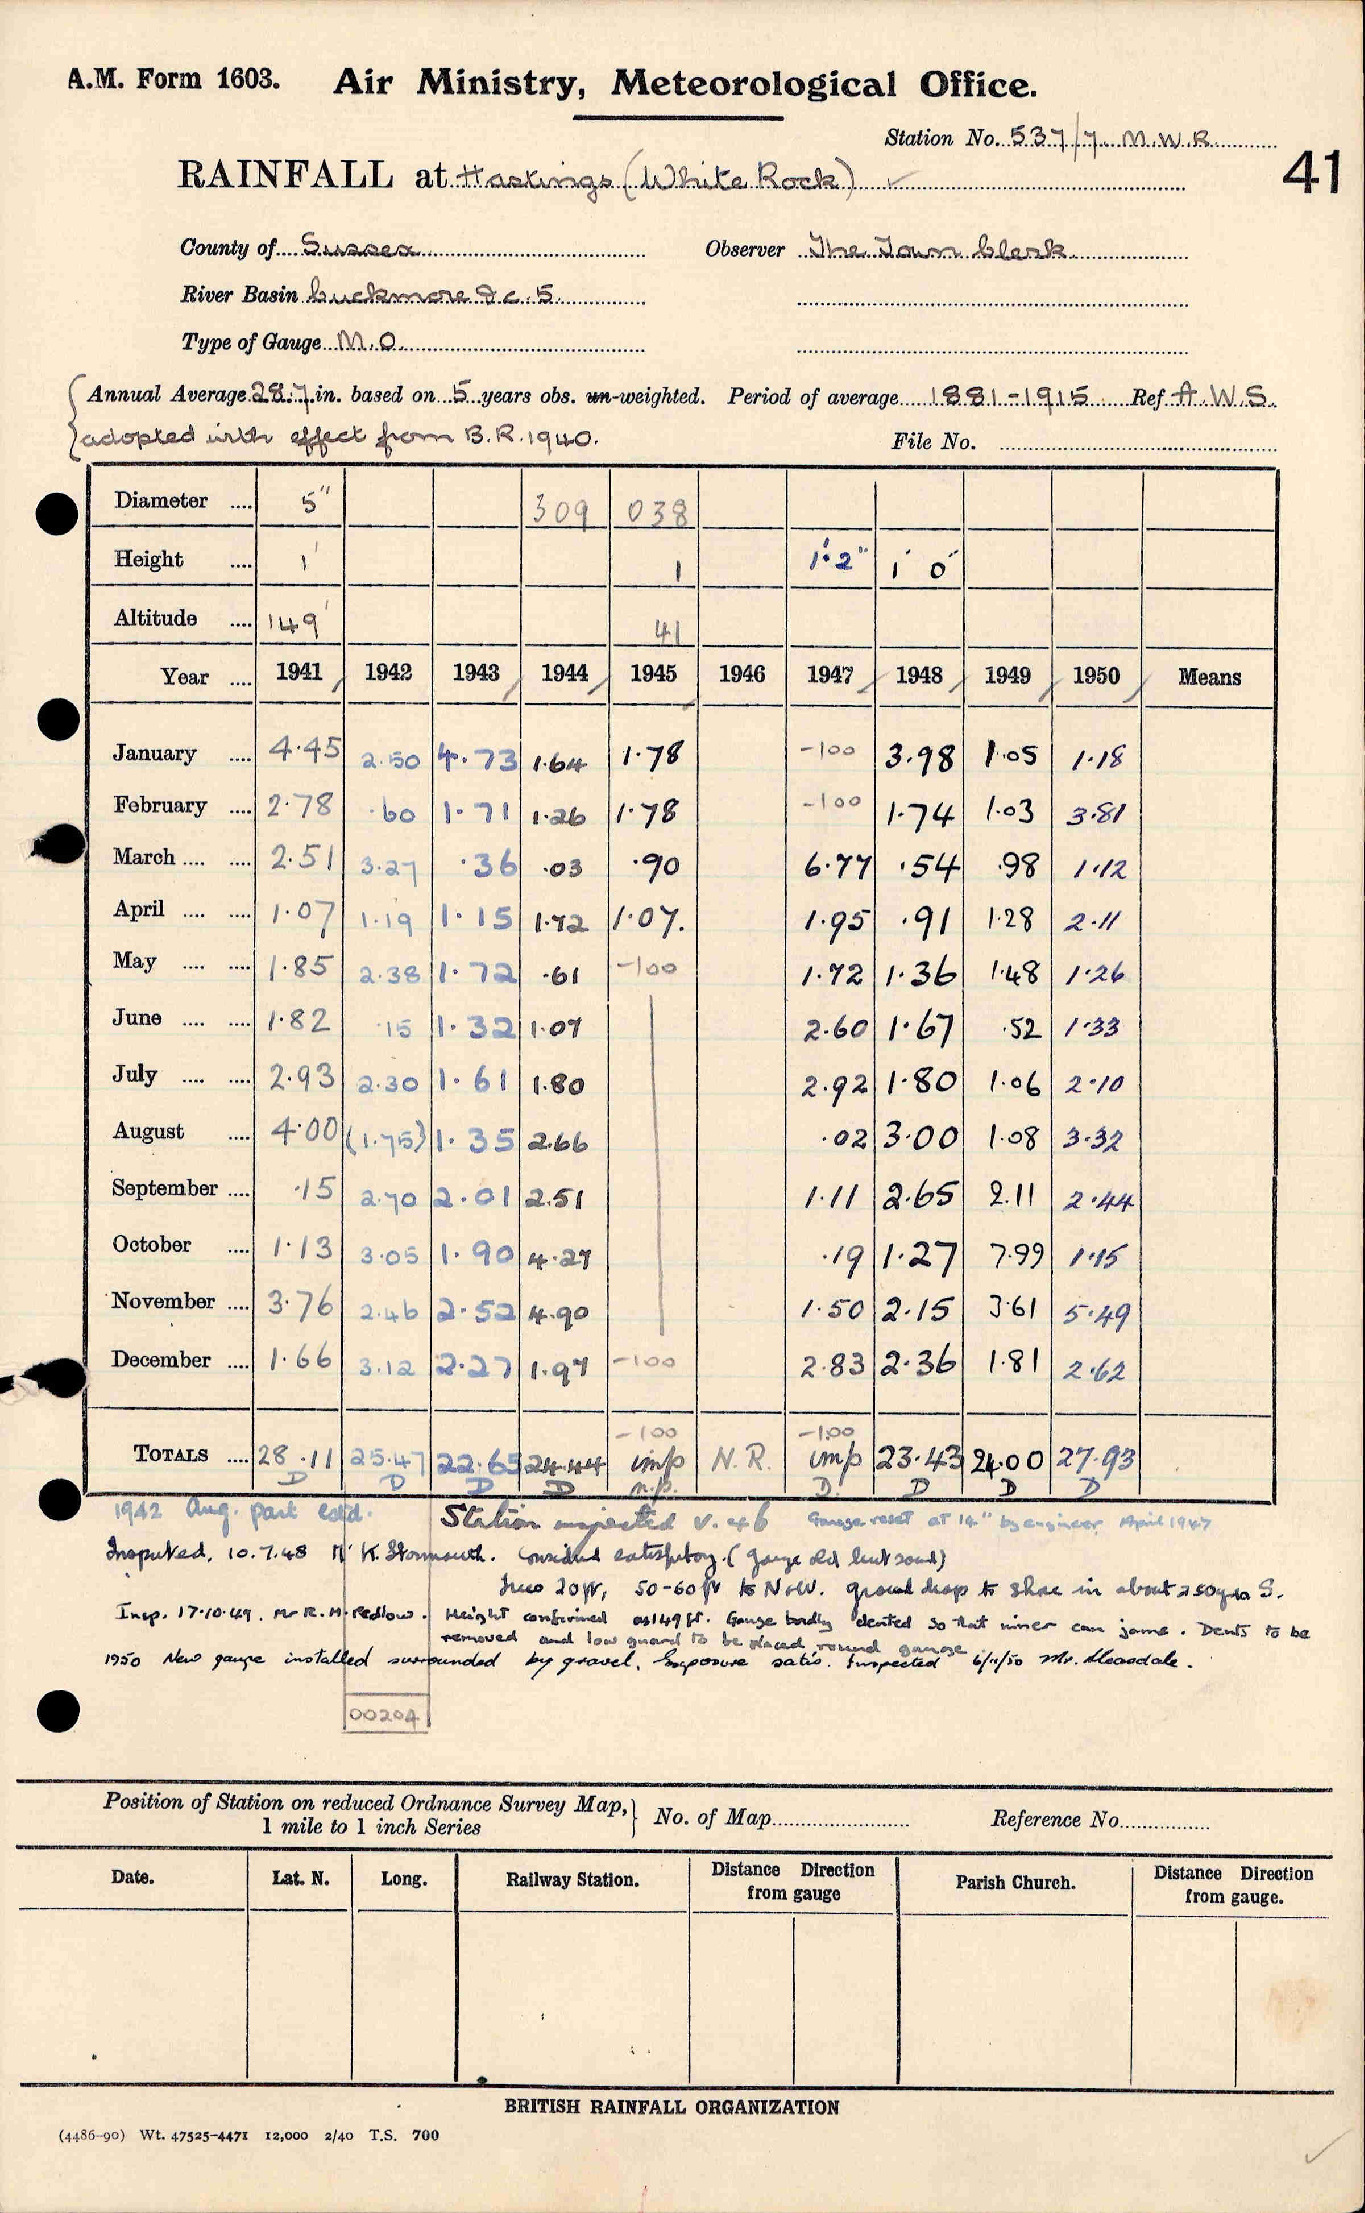 A.M. Form 1603. Air Ministry, Meteorological Office.
Station No. 537/7 M.W.R
41
RAINFALL at Hastings (White Rock)
County of Sussex Observer The Town Clerk
River Basin Cuckmere &c. 5
Type of Gauge M.O.
Annual Average 28.7 in. based on 5 years obs. un-weighted. Period of average 1881-1915 Ref A.W.S.
adopted with effect from B.R. 1940. File No.
Diameter .... 5" 309 038
Height .... 1' 1 1'·2" 1' 0"
Altitude .... 149' 41
Year .... 1941 1942 1943 1944 1945 1946 1947 1948 1949 1950 Means
January .... 4·45 2.50 4·73 1·64 1·78 -100 3·98 1·05 1·18
February .... 2·78 ·60 1·71 1·26 1·78 -100 1·74 1·03 3·81
March .... .... 2·51 3·27 ·36 ·03 ·90 6·77 ·54 ·98 1·12
April .... .... 1·07 1·19 1·15 1·72 1·07. 1·95 ·91 1·28 2·11
May .... .... 1·85 2·38 1·72 ·61 -100 1·72 1·36 1·48 1·26
June .... .... 1·82 ·15 1·32 1·07 2·60 1·67 ·52 1·33
July .... .... 2·93 2·30 1·61 1·80 2·92 1·80 1·06 2·10
August .... 4·00 (1·75) 1·35 2·66 ·02 3·00 1·08 3·32
September .... ·15 2·70 2·01 2·51 1·11 2·65 2.11 2·44
October .... 1·13 3·05 1·90 4·27 ·19 1·27 7·99 1·15
November .... 3·76 2·46 2·52 4·90 1·50 2·15 3·61 5·49
December .... 1·66 3·12 2·27 1·97 -100 2·83 2·36 1·81 2·62
-100 -100
TOTALS .... 28·11 25·47 22·65 24·44 imp N.R. imp 23·43 24·00 27·93
D D D D n.p. D. D D D
1942 Aug. part estd. Station inspected V. 46 Gauge reset at 14" by engineer April 1947
Inspected, 10.7.48 Mr K. Stormouth. Considered satisfactory. (Gauge old but sound)
Trees 20ft, 50-60ft to N&W. ground drops to shore in about 250yds S.
Insp. 17·10·49. Mr R. M. Pedlow. Height confirmed as 149 ft. Gauge badly dented so that inner can jams. Dents to be
removed and low guard to be placed round gauge
1950 New gauge installed surrounded by gravel. Exposure satis. Inspected 6/11/50 Mr. Bleasdale.
00204
Position of Station on reduced Ordnance Survey Map, No. of Map Reference No.
1 mile to 1 inch Series
Date. Lat. N. Long. Railway Station. Distance Direction from gauge Parish Church. Distance Direction from gauge.
BRITISH RAINFALL ORGANIZATION
(4486-90) Wt. 47525-4471 12,000 2/40 T.S. 700